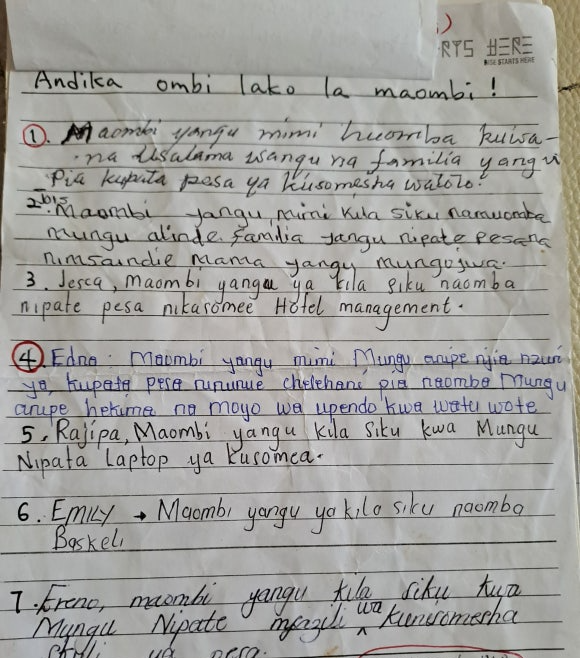 RTS HERE
RISE STARTS HERE
Andika ombi lako la maombi!
1. Maombi yangu mimi huomba kuwa-
na usalama wangu na familia yangu
Pia kupata pesa ya kusomesha watoto.
2bis. Maombi yangu, mimi kila siku namuomba
mungu alinde familia yangu nipate pesa na
nimsaidie mama yangu mungu
3. Jesca, maombi yangu ya kila siku naomba
nipate pesa nikasomee Hotel management.
4. Edna: Maombi yangu mimi Mungu anipe njia nzuri
ya kupata pesa nununue cherehani pia naomba Mungu
anipe hekima na moyo wa upendo kwa watu wote
5. Rajipa, Maombi yangu kila siku kwa Mungu
Nipata Laptop ya kusomea.
6. EMILY → Maombi yangu ya kila siku naomba
Baskeli
7. Erena, maombi yangu kila siku kwa
Mungu Nipate wa kunisomesha
ya pesa.